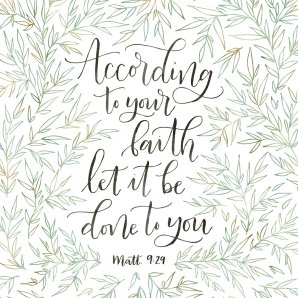 According
to your
faith
let it be
done to you
Matt. 9:29